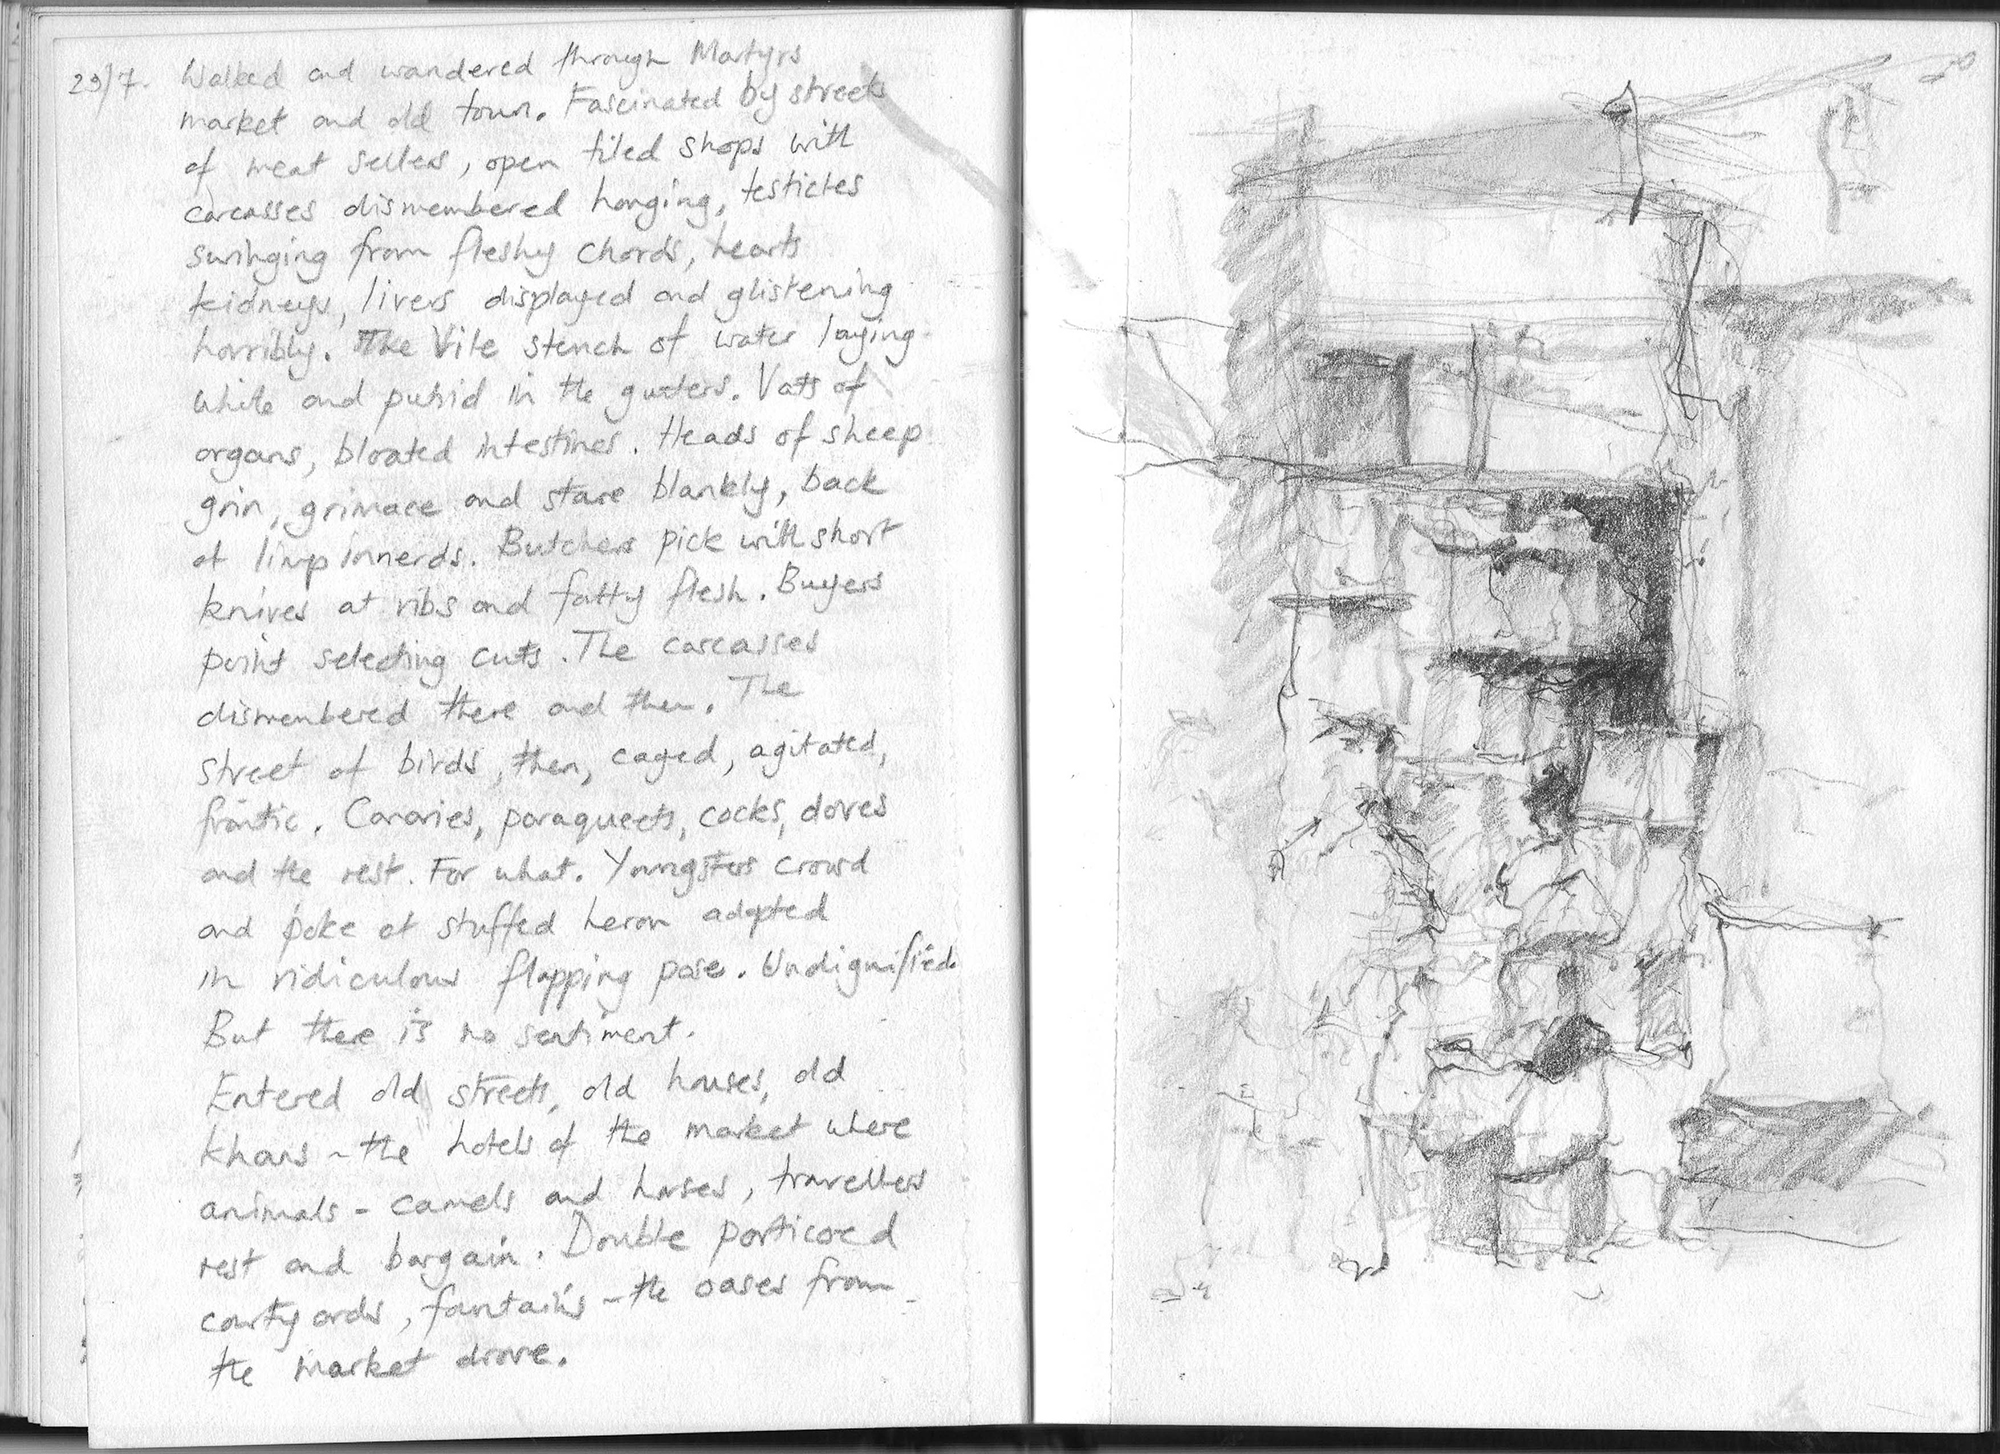 29/7. Walked and wandered through Martyrs
market and old town. Fascinated by streets
of meat sellers, open tiled shops with
carcasses dismembered hanging, testicles
swinging from fleshy chords, hearts
kidneys, livers displayed and glistening
horribly. The Vile stench of water laying
white and putrid in the gutters. Vats of
organs, bloated intestines. Heads of sheep
grin, grimace and stare blankly, back
of limp innerds. Butchers pick with short
knives at ribs and fatty flesh. Buyers
point selecting cuts. The carcasses
dismembered there and then. The
street of birds, then, caged, agitated,
frantic. Canaries, paraqueets, cocks, doves
and the rest. For what. Youngsters crowd
and poke at stuffed heron adopted
in ridiculous flapping pose. Undignified.
But there is no sentiment.
Entered old streets, old houses, old
khans - the hotels of the market where
animals - camels and horses, travellers
rest and bargain. Double porticoed
courtyards, fountains - the oases from
the market drone.